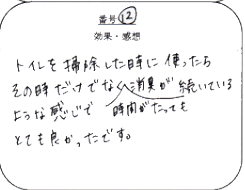 番号 ⑫
効果・感想
トイレを掃除した時に使ったら
その時だけでなく消臭が続いている
ような感じで 時間がたっても
とても良かったです。